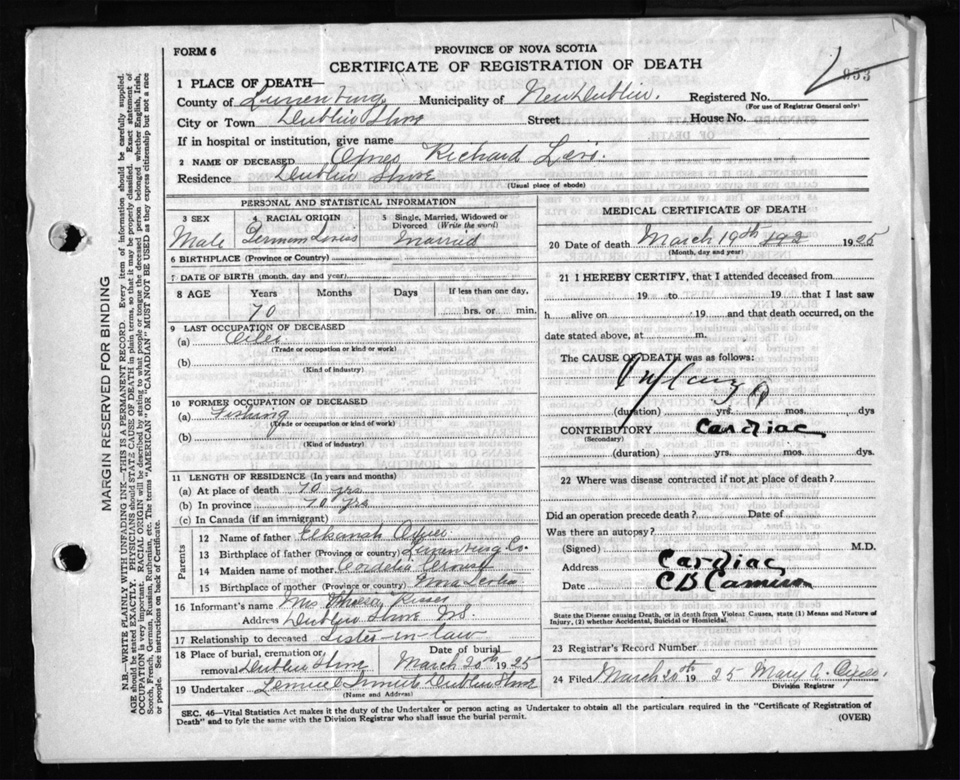 FORM 6
PROVINCE OF NOVA SCOTIA
CERTIFICATE OF REGISTRATION OF DEATH
853
1 PLACE OF DEATH—
County of Lunenburg Municipality of New Dublin. Registered No.
(For use of Registrar General only)
City or Town Dublin Shore Street House No.
If in hospital or institution, give name
2 NAME OF DECEASED Richard Levi.
Residence Dublin Shore
(Usual place of abode)
PERSONAL AND STATISTICAL INFORMATION
3 SEX
Male
4 RACIAL ORIGIN
German
5 Single, Married, Widowed or Divorced (Write the word)
Married
6 BIRTHPLACE (Province or Country)
7 DATE OF BIRTH (month, day and year)
8 AGE Years Months Days If less than one day,
70 hrs. or min.
9 LAST OCCUPATION OF DECEASED
(a)
(Trade or occupation or kind of work)
(b)
(Kind of industry)
10 FORMER OCCUPATION OF DECEASED
(a) Fishing
(Trade or occupation or kind of work)
(b)
(Kind of industry)
11 LENGTH OF RESIDENCE (In years and months)
(a) At place of death 70 yrs
(b) In province 70 yrs
(c) In Canada (if an immigrant)
Parents
12 Name of father Elkanah
13 Birthplace of father (Province or country) Lunenburg Co.
14 Maiden name of mother Cordelia
15 Birthplace of mother (Province or country) Nova Scotia
16 Informant's name Mrs
Address Dublin Shore N.S.
17 Relationship to deceased Sister-in-law
18 Place of burial, cremation or removal Dublin Shore
Date of burial
March 20th 1925
19 Undertaker Dublin Shore
(Name and Address)
MEDICAL CERTIFICATE OF DEATH
20 Date of death March 19th 192 1925
(Month, day and year)
21 I HEREBY CERTIFY, that I attended deceased from
19 to 19 that I last saw
h alive on 19 and that death occurred, on
date stated above, at m.
The CAUSE OF DEATH was as follows:
(duration) yrs. mos. dys
CONTRIBUTORY Cardiac
(Secondary)
(duration) yrs. mos. dys.
22 Where was disease contracted if not at place of death?
Did an operation precede death? Date of
Was there an autopsy?
(Signed) M.D.
Address Cardiac
Date C B Cameron
State the Disease causing Death, or in death from Violent Causes, state (1) Means and Nature of
Injury, (2) whether Accidental, Suicidal or Homicidal.
23 Registrar's Record Number
24 Filed March 20th 19 25 Mary A.
Division Registrar
SEC. 46—Vital Statistics Act makes it the duty of the Undertaker or person acting as Undertaker to obtain all the particulars required in the "Certificate of Registration of
Death" and to fyle the same with the Division Registrar who shall issue the burial permit.
(OVER)
MARGIN RESERVED FOR BINDING
N.B.—WRITE PLAINLY WITH UNFADING INK—THIS IS A PERMANENT RECORD. Every item of information should be carefully supplied.
AGE should be stated EXACTLY. PHYSICIANS should STATE CAUSE OF DEATH in plain terms, so that it may be properly classified. Exact statement of
OCCUPATION is very important. RACIAL ORIGIN will be described by stating to what people or tongue the deceased person belonged, whether English, Irish,
Scotch, French, German, Russian, Ruthenian, etc. The terms "AMERICAN" OR "CANADIAN" MUST NOT BE USED as they express citizenship but not a race
or people. See instructions on back of Certificate.